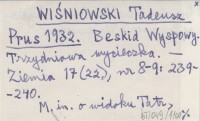 WIŚNIOWSKI Tadeusz
Prus 1932. Beskid Wyspowy.
Trzydniowa wycieczka. —
Ziemia 17(22), nr 8-9: 239-
-240.
M. in. o widoku Tatr,